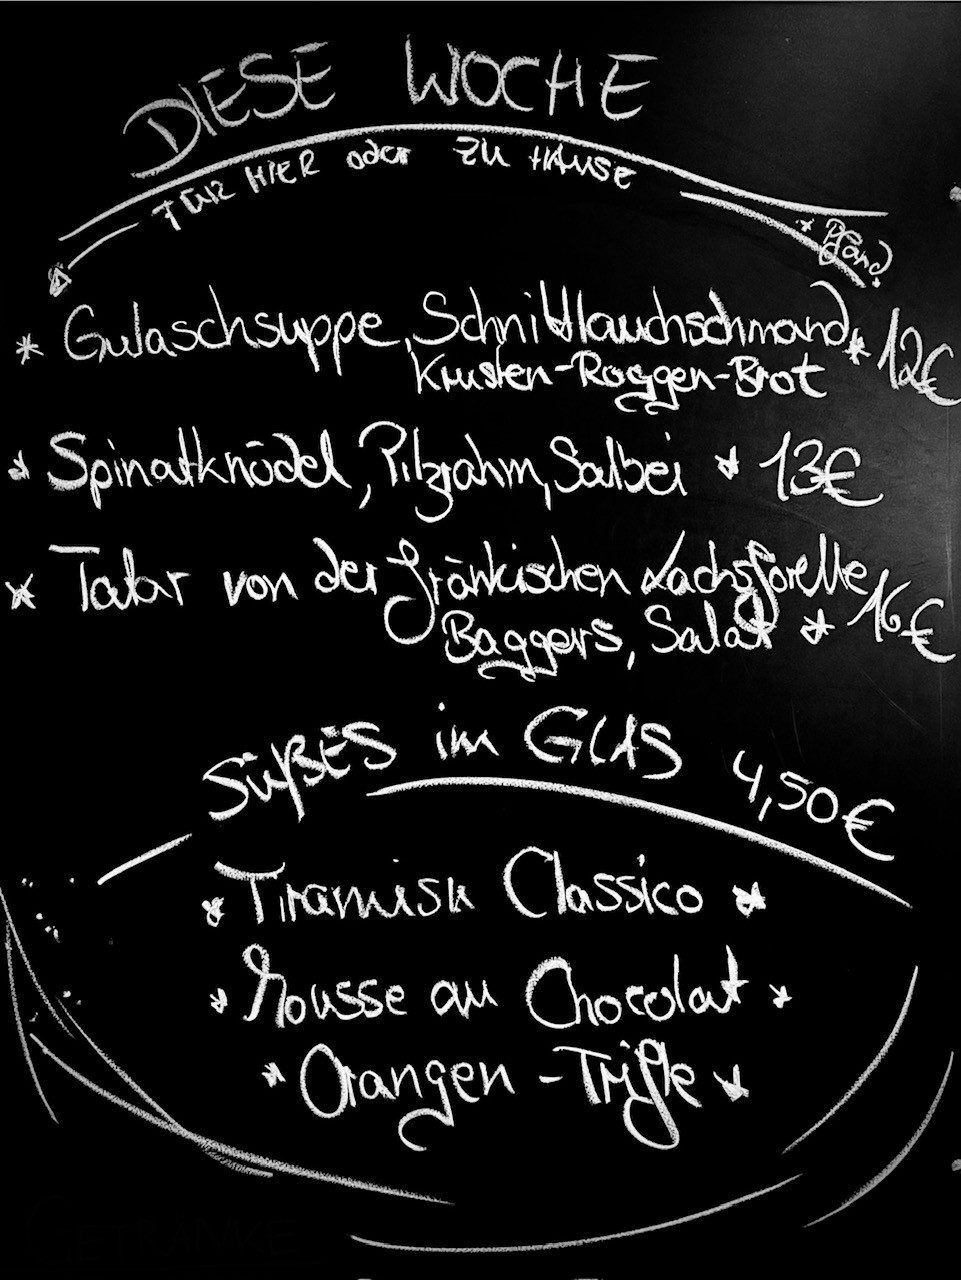 DIESE WOCHE
FÜR HIER oder ZU HAUSE
* Pfand
* Gulaschsuppe, Schnittlauchschmand * 12€
Krusten-Roggen-Brot
* Spinatknödel, Pilzrahm, Salbei * 13€
* Tatar von der fränkischen Lachsforelle 16€
Baggers, Salat *
SÜßES im GLAS 4,50€
* Tiramisu Classico *
* Mousse au Chocolat *
* Orangen-Trifle *
GETRÄNKE